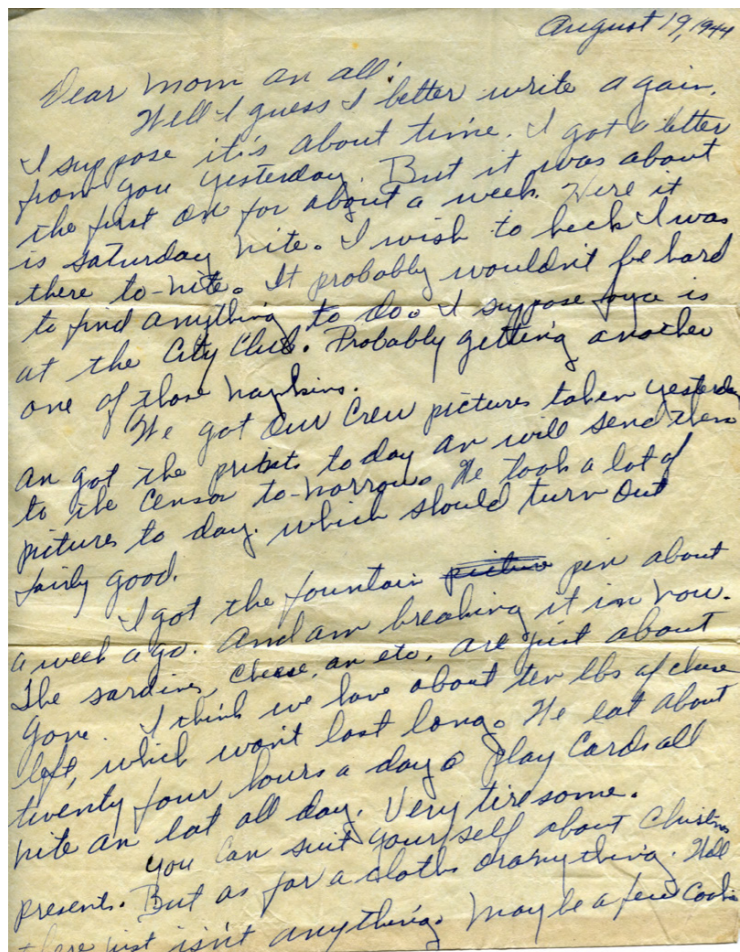 August 19, 1944
Dear Mom an all:
Well I guess I better write again.
I suppose it's about time. I got a letter
from you yesterday. But it was about
the first on for about a week. Here it
is saturday nite. I wish to heck I was
there to-nite. It probably wouldn't be hard
to find anything to do. I suppose Joyce is
at the City Club. Probably getting another
one of those napkins.
We got our Crew pictures taken yesterday
an got the prints today an will send them
to the Censor to-morrow. We took a lot of
pictures to day. which should turn out
fairly good.
I got the fountain pin about
a week ago. And am breaking it in now.
The sardines, cheese, an etc. are just about
gone. I think we have about ten lbs of cheese
left, which won't last long. We eat about
twenty four hours a day. Play Cards all
nite an eat all day. Very tiresome.
You can suit yourself about Christmas
presents. But as for a cloths or anything. Well
there just isn't anything. Maybe a few Cookies